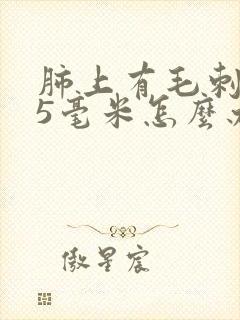 肺上有毛刺
5毫米怎麽
傲星宸